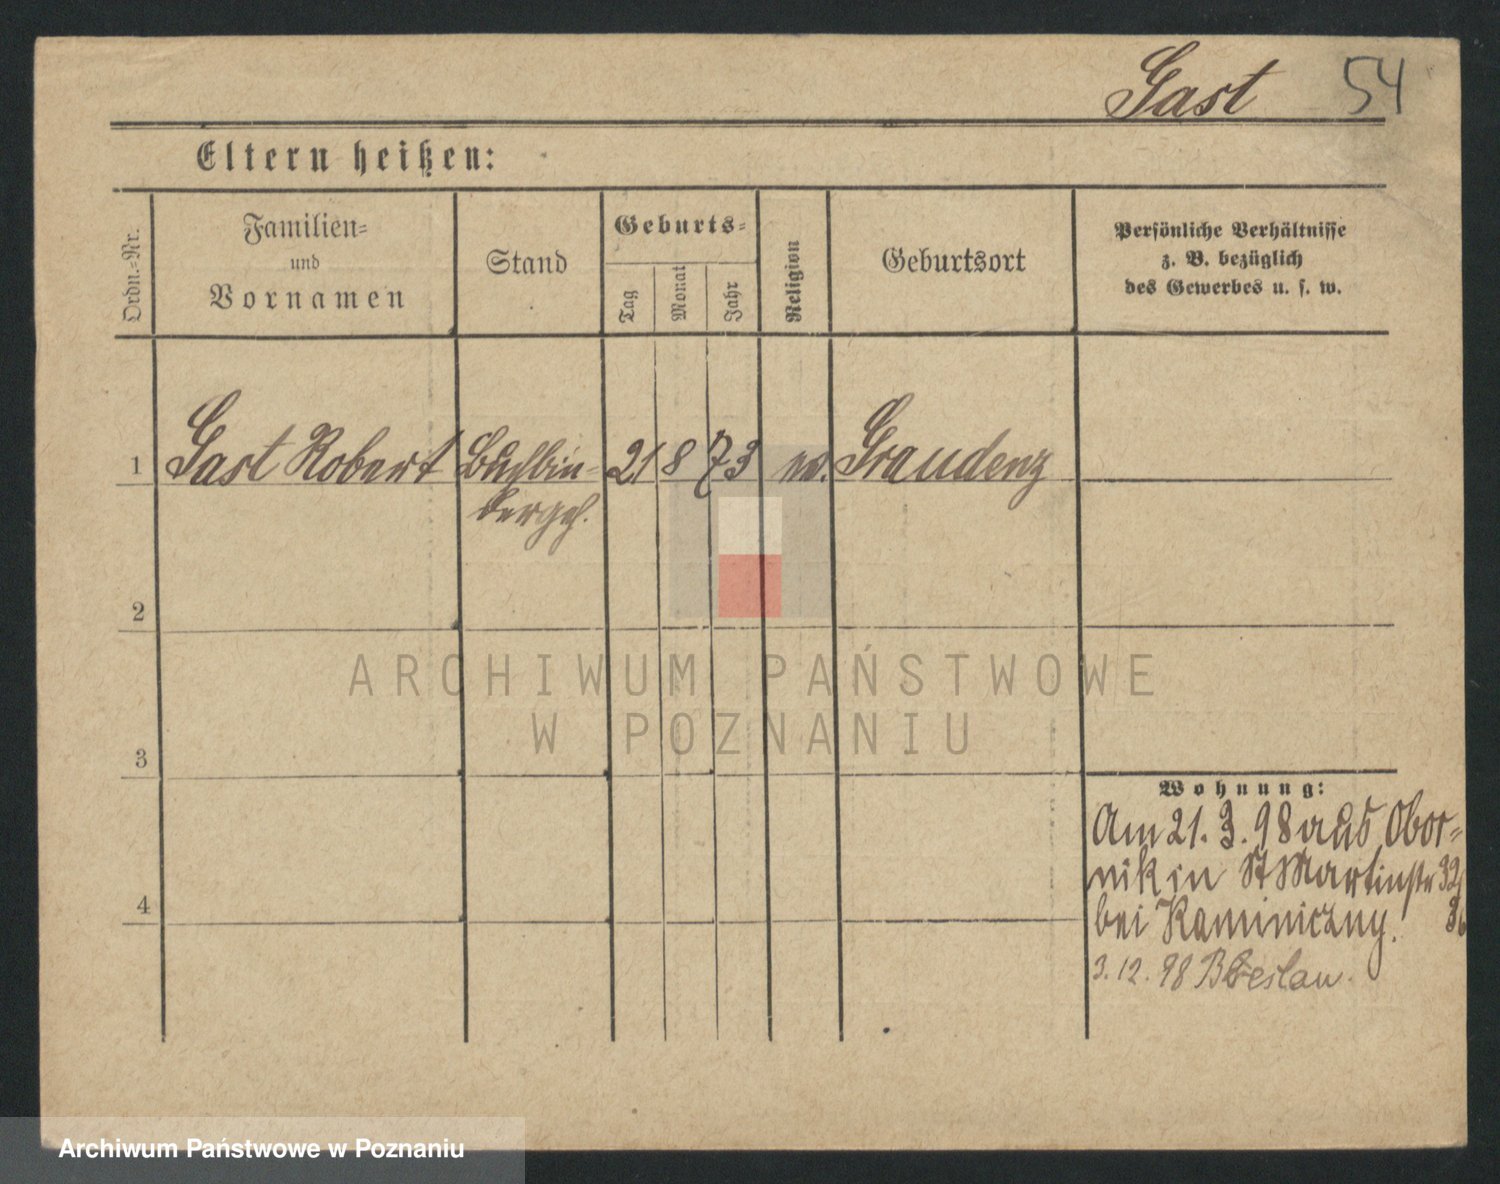 Gast 54
Eltern heißen:
Ordn.-Nr.
Familien-
und
Vornamen
Stand
Geburts-
Tag
Monat
Jahr
Religion
Geburtsort
Persönliche Verhältnisse
z. B. bezüglich
des Gewerbes u. s. w.
1 Gast Robert Buchbin- 21 8 73 ev. Graudenz
dergeh.
2
ARCHIWUM PAŃSTWOWE
W POZNANIU
3
Wohnung:
Am 21. 3. 98 aus Obor-
nik in St Martinstr 32
bei Kaminiczny.
4
3. 12. 98 Breslau.
Archiwum Państwowe w Poznaniu